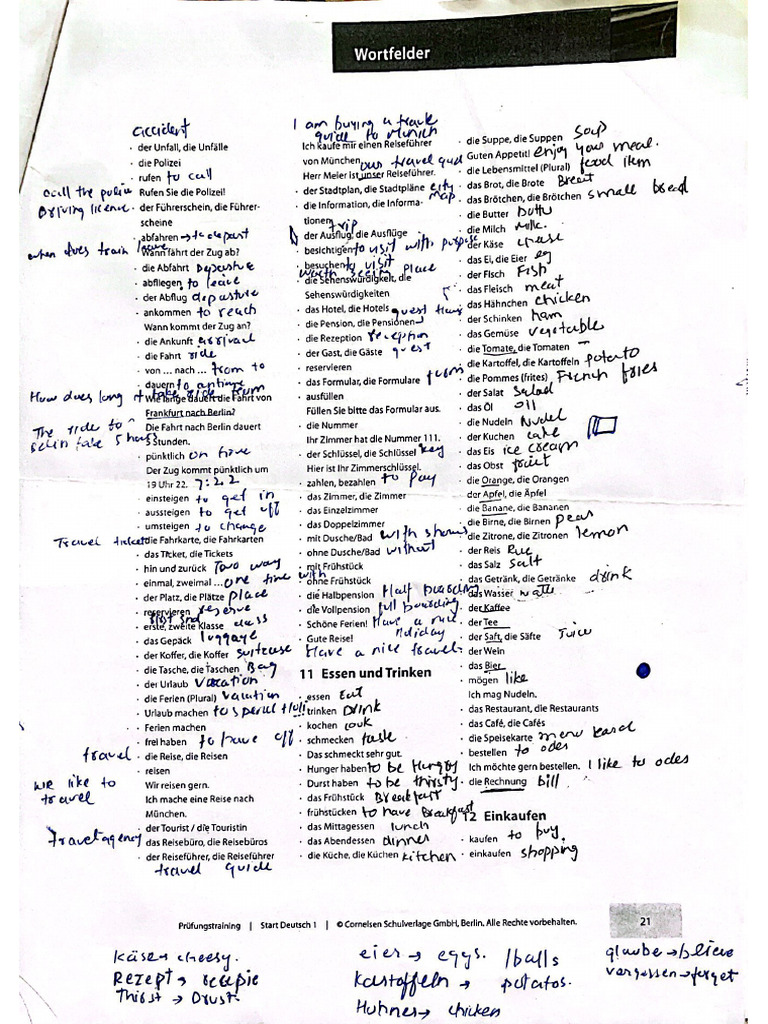 Wortfelder
accident
· der Unfall, die Unfälle
· die Polizei
· rufen to call
call the police Rufen Sie die Polizei!
Driving licence · der Führerschein, die Führer-
scheine
· abfahren → to depart
when does train leave Wann fährt der Zug ab?
· die Abfahrt Departure
· abfliegen to leave
· der Abflug departure
· ankommen to reach
Wann kommt der Zug an?
· die Ankunft arrival
· die Fahrt ride
· von ... nach ... from to
· dauern
How does long take ride from Wie lange dauert die Fahrt von
Frankfurt nach Berlin?
The ride to Die Fahrt nach Berlin dauert
take 5 hours 5 Stunden.
· pünktlich on time
Der Zug kommt pünktlich um
19 Uhr 22. 7:22
· einsteigen to get in
· aussteigen to get off
· umsteigen to change
Travel ticket · die Fahrkarte, die Fahrkarten
· das Ticket, die Tickets
· hin und zurück Two way
· einmal, zweimal ... one time
· der Platz, die Plätze place
· reservieren reserve
· erste, zweite Klasse class
· das Gepäck luggage
· der Koffer, die Koffer suitcase
· die Tasche, die Taschen Bag
· der Urlaub vacation
· die Ferien (Plural) vacation
· Urlaub machen to spend
· Ferien machen
· frei haben to have off
travel · die Reise, die Reisen
· reisen
we like to Wir reisen gern.
travel Ich mache eine Reise nach
München.
· der Tourist / die Touristin
travel agency · das Reisebüro, die Reisebüros
· der Reiseführer, die Reiseführer
travel guide
I am buying a travel
guide to Munich
Ich kaufe mir einen Reiseführer
von München.
Herr Meier ist unser Reiseführer. our travel guid
· der Stadtplan, die Stadtpläne city
· die Information, die Informa- map
tionen
trip
· der Ausflug, die Ausflüge
· besichtigen to visit with purpose
· besuchen to visit
worth seeing place
· die Sehenswürdigkeit, die
Sehenswürdigkeiten
· das Hotel, die Hotels
· die Pension, die Pensionen
· die Rezeption reception
· der Gast, die Gäste guest
· reservieren
· das Formular, die Formulare form
· ausfüllen
Füllen Sie bitte das Formular aus.
· die Nummer
Ihr Zimmer hat die Nummer 111.
· der Schlüssel, die Schlüssel key
Hier ist Ihr Zimmerschlüssel.
· zahlen, bezahlen to pay
· das Zimmer, die Zimmer
· das Einzelzimmer
· das Doppelzimmer
· mit Dusche/Bad with
· ohne Dusche/Bad without
· mit Frühstück
with
· ohne Frühstück
· die Halbpension Half boarding
· die Vollpension full boarding
· Schöne Ferien! Have a nice
Holiday
· Gute Reise!
Have a nice travel
11 Essen und Trinken
· essen Eat
· trinken Drink
· kochen cook
· schmecken taste
Das schmeckt sehr gut.
· Hunger haben to be Hungry
· Durst haben to be thirsty
· das Frühstück Breakfast
· frühstücken to have Breakfast
· das Mittagessen lunch
· das Abendessen dinner
· die Küche, die Küchen kitchen
· die Suppe, die Suppen soup
Guten Appetit! enjoy your meal.
· die Lebensmittel (Plural) food item
· das Brot, die Brote Breat
· das Brötchen, die Brötchen small bread
· die Butter
· die Milch Milk.
· der Käse
· das Ei, die Eier eg
· der Fisch Fish
· das Fleisch meat
· das Hähnchen chicken
· der Schinken ham
· das Gemüse vegetable
· die Tomate, die Tomaten
· die Kartoffel, die Kartoffeln potato
· die Pommes (frites) French fries
· der Salat salad
· das Öl oil
· die Nudeln Nudel
· der Kuchen cake
· das Eis ice cream
· das Obst fruit
· die Orange, die Orangen
· der Apfel, die Äpfel
· die Banane, die Bananen
· die Birne, die Birnen pear
· die Zitrone, die Zitronen lemon
· der Reis
· das Salz salt
· das Getränk, die Getränke drink
· das Wasser
· der Kaffee
· der Tee
· der Saft, die Säfte Juice
· der Wein
· das Bier
· mögen like
Ich mag Nudeln.
· das Restaurant, die Restaurants
· das Café, die Cafés
· die Speisekarte menu kard
· bestellen to odes
Ich möchte gern bestellen. I like to odes
· die Rechnung bill
12 Einkaufen
· kaufen to buy.
· einkaufen shopping
Prüfungstraining | Start Deutsch 1 | © Cornelsen Schulverlage GmbH, Berlin. Alle Rechte vorbehalten.
21
Käse → cheesy.
Rezept → recepie
Thirst → Drust.
eier → eggs. / balls
Kartoffeln → potatos.
Huhner → chicken
glaube → blieve
vergessen → forget